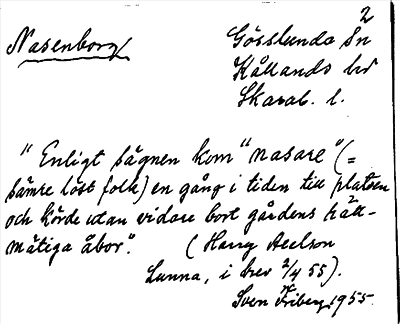 2
Nasenborg
Götslunda sn
Kållands hd
Skarab. l.
"Enligt sägnen kom "nasare" (=
sämre löst folk) en gång i tiden till platsen
och körde utan vidare bort gårdens rätt-
mätiga åbor".
(Harry Axelson
Lunna, i brev 2/4 55).
Sven Friberg 1955